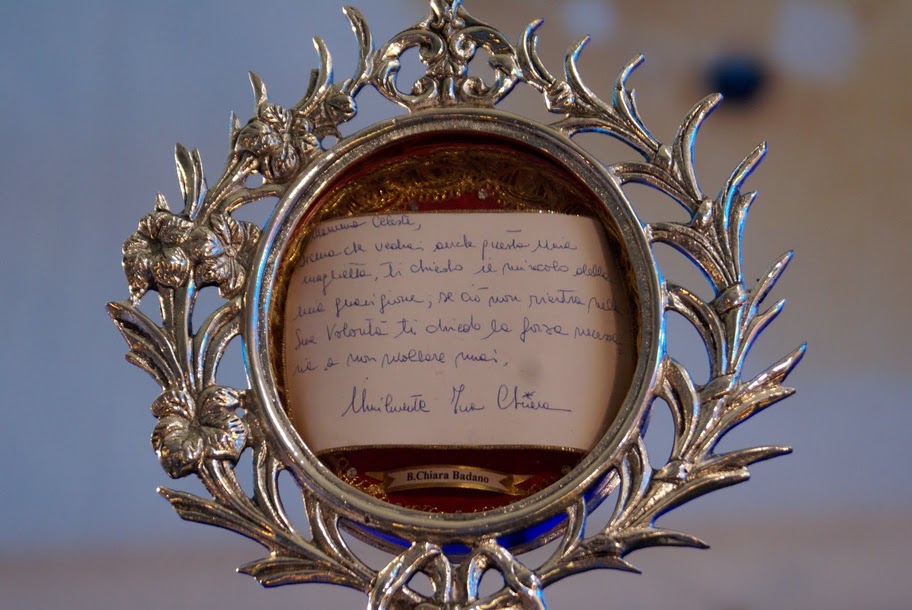 Mamma Celeste,
Prima che vedrai anche questa mia
maglietta, ti chiedo il miracolo della
mia guarigione, se ciò non rientra nella
Sua Volontà ti chiedo la forza necessa
ria a non mollare mai.
Umilmente Tua Chiara
B.Chiara Badano